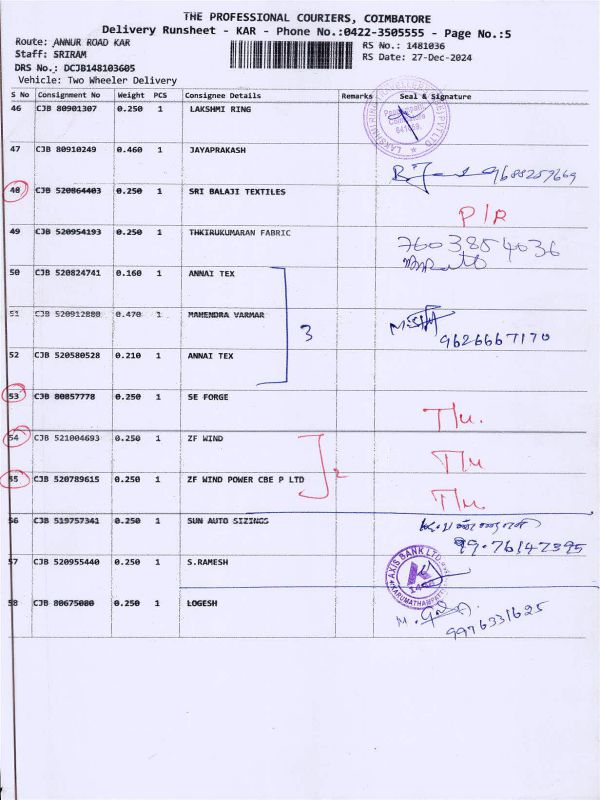 THE PROFESSIONAL COURIERS, COIMBATORE
Delivery Runsheet - KAR - Phone No.:0422-3505555 - Page No.:5
Route: ANNUR ROAD KAR
RS No.: 1481036
Staff: SRIRAM
RS Date: 27-Dec-2024
DRS No.: DCJB148103605
Vehicle: Two Wheeler Delivery
S No Consignment No Weight PCS Consignee Details Remarks Seal & Signature
46 CJB 80901307 0.250 1 LAKSHMI RING
47 CJB 80910249 0.460 1 JAYAPRAKASH
9688259669
48 CJB 520864403 0.250 1 SRI BALAJI TEXTILES
P/R
49 CJB 520954193 0.250 1 THKIRUKUMARAN FABRIC
7603854036
50 CJB 520824741 0.160 1 ANNAI TEX
51 CJB 520912880 0.470 1 MAHENDRA VARMAR
3
9626667170
52 CJB 520580528 0.210 1 ANNAI TEX
53 CJB 80857778 0.250 1 SE FORGE
54 CJB 521004693 0.250 1 ZF WIND
2
55 CJB 520789615 0.250 1 ZF WIND POWER CBE P LTD
56 CJB 519757341 0.250 1 SUN AUTO SIZINGS
99.76147395
57 CJB 520955440 0.250 1 S.RAMESH
AXIS BANK LTD
58 CJB 80675080 0.250 1 LOGESH
9976331625